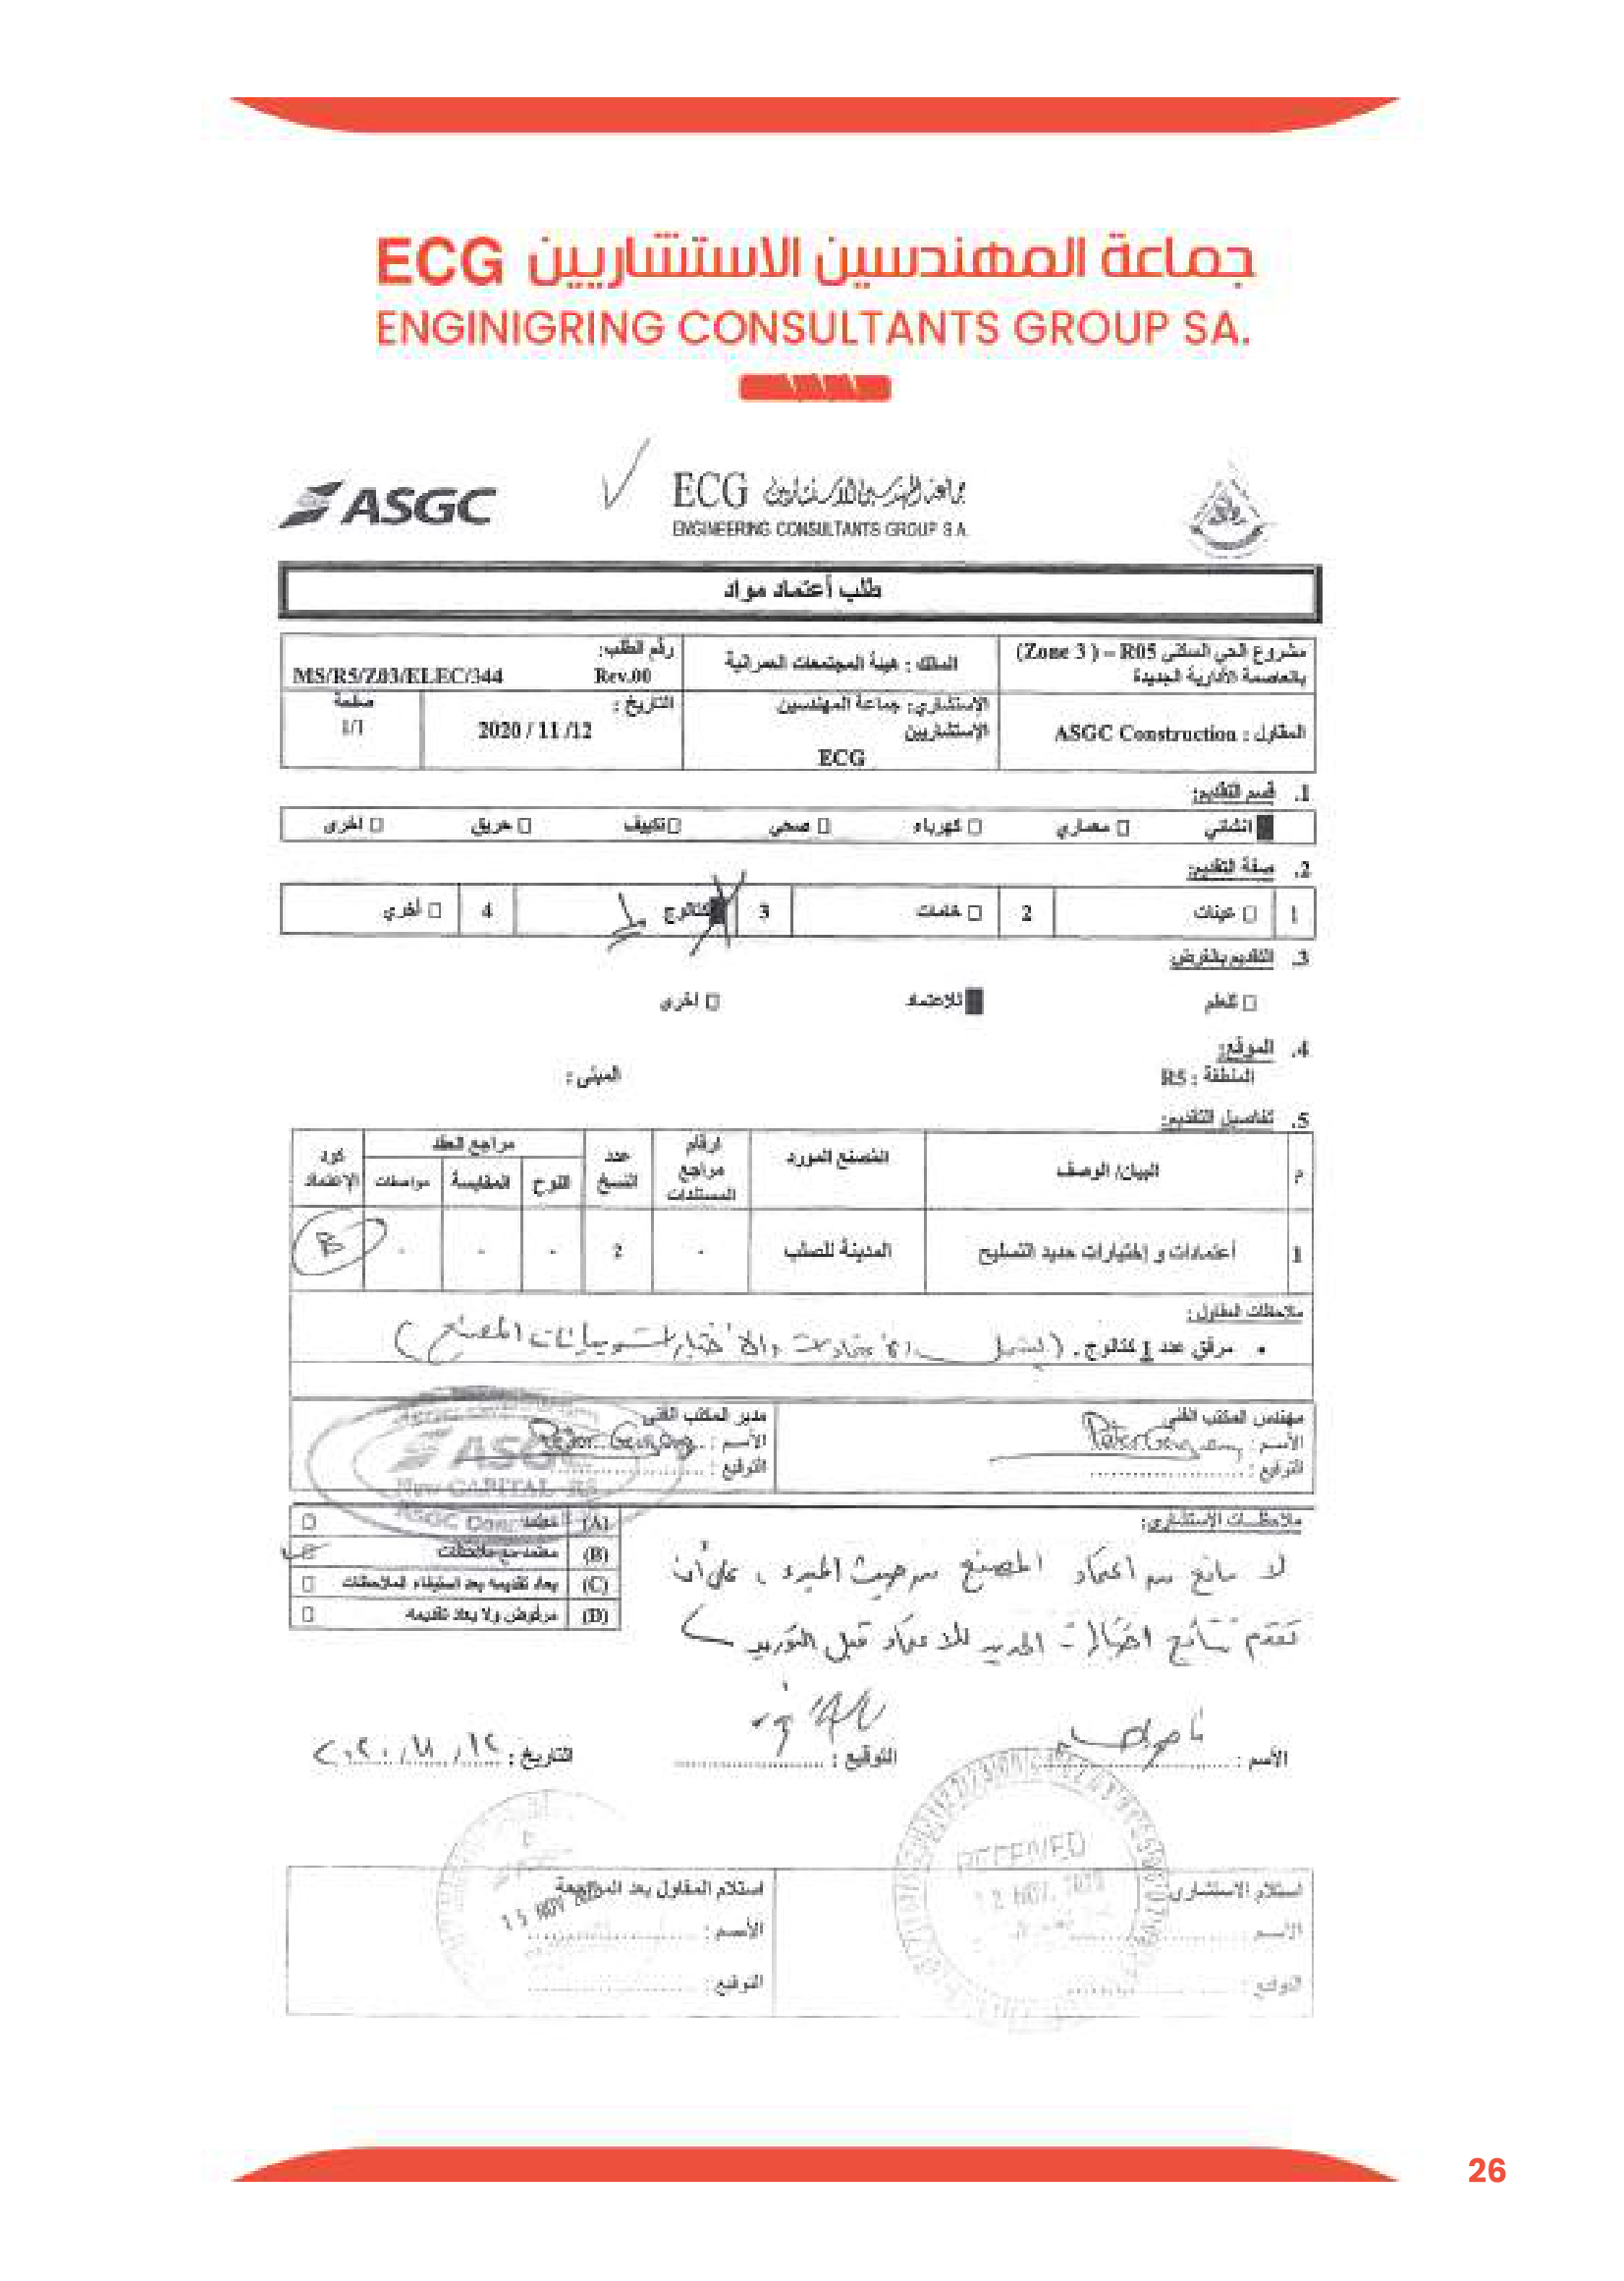 جماعة المهندسين الاستشاريين ECG
ENGINIGRING CONSULTANTS GROUP SA.
ASGC
ECG جماعة المهندسين الاستشاريين
ENGINEERING CONSULTANTS GROUP S A
طلب أعتماد مواد
مشروع الحي السكني R05 – ( Zone 3)
بالعاصمة الأدارية الجديدة
المالك : هيئة المجتمعات العمرانية
رقم الطلب:
MS/R5/Z03/ELEC/344 Rev.00
المقاول : ASGC Construction
الإستشاري: جماعة المهندسين
الإستشاريين
ECG
التاريخ :
2020 / 11 /12
صفحة
1/1
1. قسم التقديم:
انشائي معماري كهرباء صحي تكييف حريق اخرى
2. صفة التقديم:
1 عينات 2 خامات 3 كتالوج 4 أخري
3. التقديم بالغرض:
للعلم للاعتماد اخرى
4. الموقع:
المنطقة : R5 المبنى :
5. تفاصيل التقديم:
م البيان/ الوصف المصنع المورد ارقام مراجع المستندات عدد النسخ مراجع العقد كود الإعتماد
اللوح المقايسة مواصفات
1 أعتمادات و إختبارات حديد التسليح المدينة للصلب - 2 - - - B
ملاحظات المقاول :
• مرفق عدد 1 كتالوج . (يشمل الاعتمادات والاختبارات وبيانات المصنع)
مهندس المكتب الفني
الأسم :
التوقيع :
مدير المكتب الفني
الأسم :
التوقيع :
ASGC
New CAPITAL R5
ملاحظات الإستشاري:
(A) معتمد
(B) معتمد مع ملاحظات
(C) يعاد تقديمه بعد استيفاء الملاحظات
(D) مرفوض ولا يعاد تقديمه
لا مانع من اعتماد المصنع من حيث المبدء ، على أن
تقدم نتائج اختبارات الحديد للاعتماد قبل التوريد
الأسم :
التوقيع :
التاريخ : ١٢/١١/٢٠٢٠
استلام الاستشاري
الأسم :
التوقيع :
RECEIVED
12 NOV. 2020
استلام المقاول بعد المراجعة
15 NOV 2020
الأسم :
التوقيع :
26